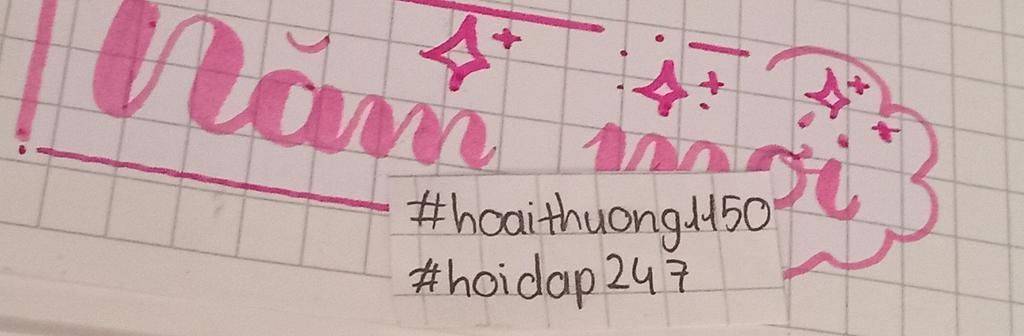 Năm mới
#hoaithuong1150
#hoidap247